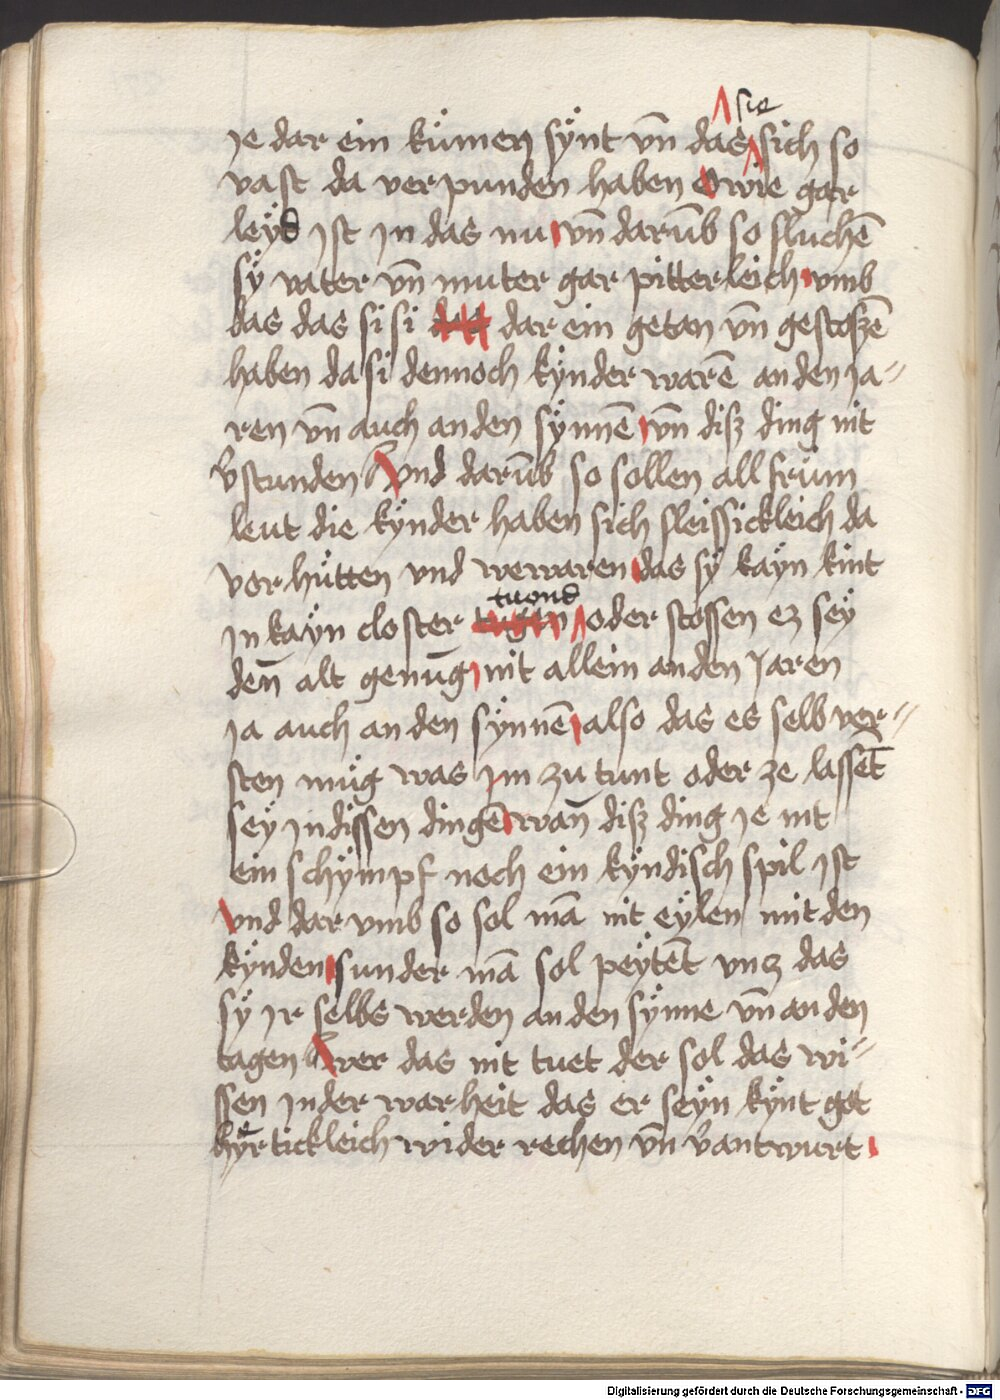 sie
je dar ein kümen sÿnt vn̄ das sich so
vast da ver punden haben O wie gar
leÿd jst jn das nu vn̄ darūb so fluchē
sÿ vater vn̄ muter gar pitterleich vmb
das das si si das dar ein getan vn̄ gestoszē
haben da si dennoch kÿnder warē an den ja-
ren vn̄ auch an den sÿnnē vn̄ disz ding nit
v̄stunden Vnd darūb so sollen all frum
leut die kÿnder haben sich fleissickleich da
vor hütten vnd wewaren das sÿ kaÿn kint
tuond
jn kaÿn closter oder stossen ez seÿ
den̄ alt genūg nit allein an den jaren
ja auch an den sÿnnē also das es selb ver-
sten müg was jm zu tunt oder ze lassēt
seÿ jn dissen dingē wan̄ disz ding je nit
ein schÿmpf noch ein kÿndisch spil jst
Vnd dar vmb so sol mā nit eÿlen mit den
kÿnden sunder mā sol peÿtēt vnz das
sÿ jr selbs werden an den sÿnne vn̄ an den
tagen Wer das nit tuet der sol das wi-
ssen jn der warheit das er seÿn kÿnt got
hÿrtickleich wider rechen vn̄ v̄antwurt
Digitalisierung gefördert durch die Deutsche Forschungsgemeinschaft - DFG